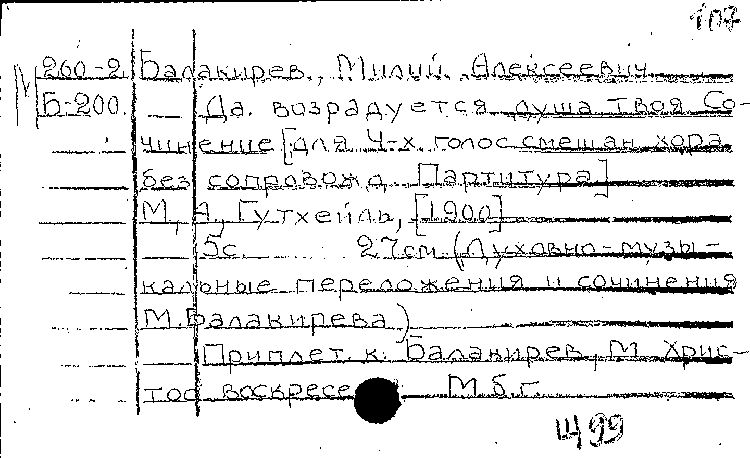 107
260-2 Балакирев, Милий Алексеевич
Б-200. Да возрадуется душа твоя Со-
чинение [для 4-х голос смешан хора
без сопровожд. Партитура]
М, А, Гутхейль, [1900]
5с. 27см (Духовно-музы-
кальные переложения и сочинения
М.Балакирева)
Приплет. к. Балакирев, М Хрис-
тос воскресе М.б.г.
Щ 99